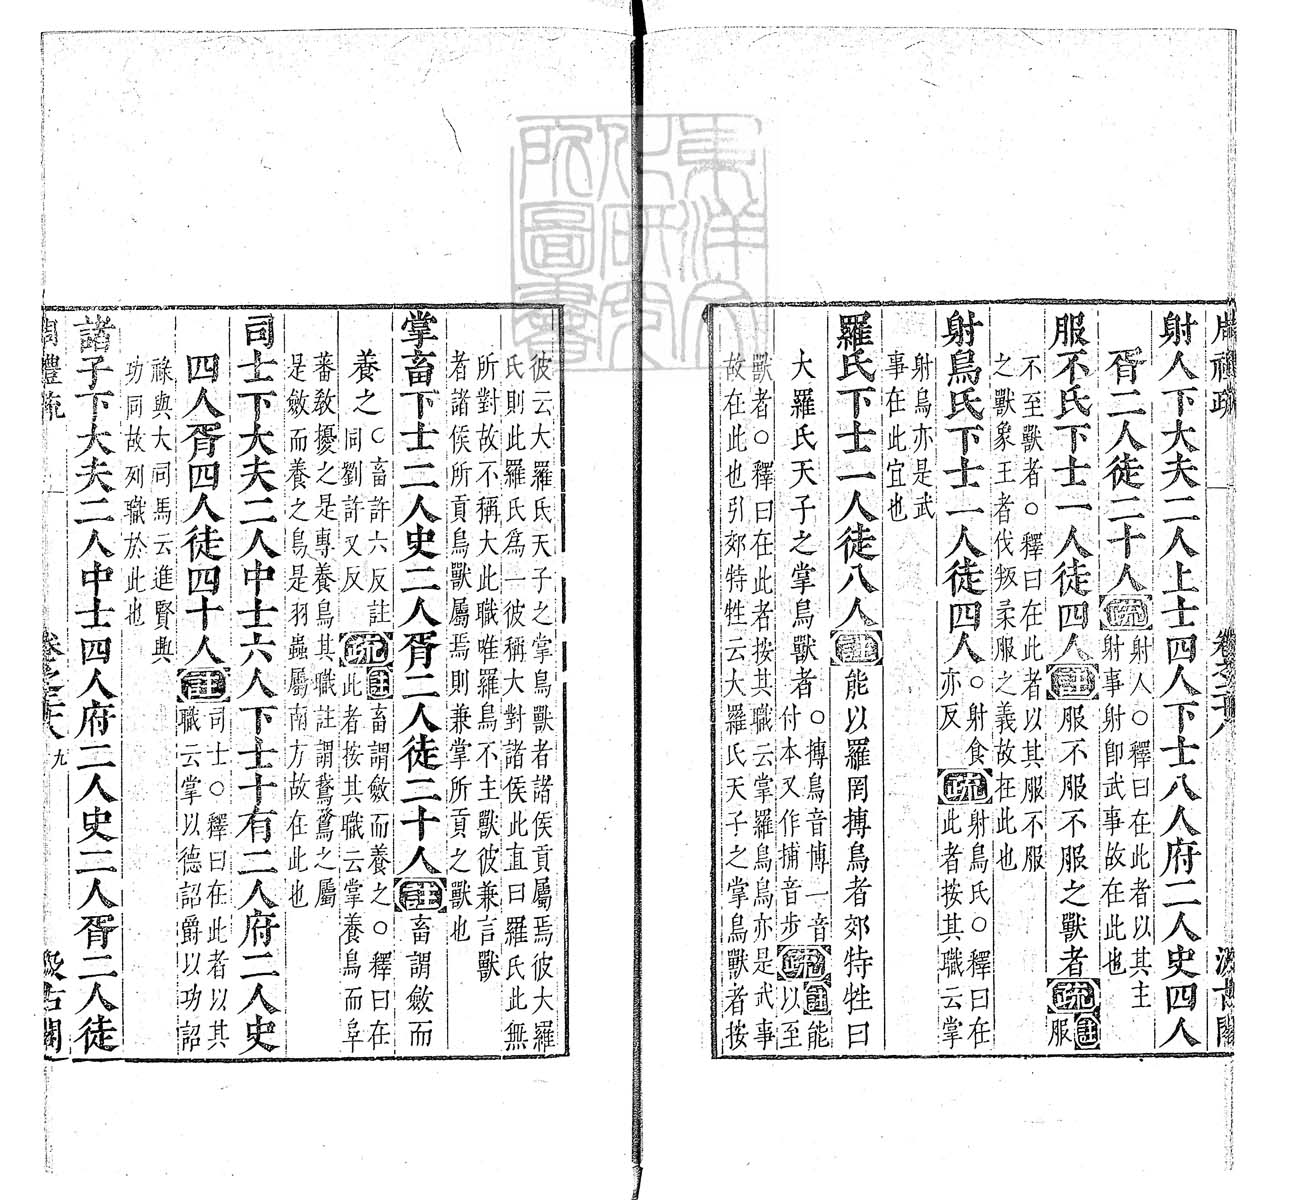 周禮疏 卷之二十八 汲古閣
射人下大夫二人上士四人下士八人府二人史四人
胥二人徒二十人疏射人○釋曰在此者以其主
射事射卽武事故在此也
服不氏下士一人徒四人註服不服不服之獸者疏註服
不至獸者○釋曰在此者以其服不服
之獸象王者伐叛柔服之義故在此也
射鳥氏下士一人徒四人○射食亦反疏射鳥氏○釋曰在此者按其職云掌
射鳥亦是武
事在此宜也
羅氏下士一人徒八人註能以羅罔搏鳥者郊特牲曰
大羅氏天子之掌鳥獸者○搏鳥音博一音付本又作捕音步疏註能以至
獸者○釋曰在此者按其職云掌羅烏鳥亦是武事
故在此也引郊特牲云大羅氏天子之掌鳥獸者按
彼云大羅氏天子之掌鳥獸者諸侯貢屬焉彼大羅
氏則此羅氏爲一彼稱大對諸侯此直曰羅氏此無
所對故不稱大此職唯羅鳥不主獸彼兼言獸
者諸侯所貢鳥獸屬焉則兼掌所貢之獸也
掌畜下士二人史二人胥二人徒二十人註畜謂斂而
養之○畜許六反註同劉許又反疏註畜謂斂而養之○釋曰在此者按其職云掌養鳥而阜
蕃敎擾之是專養鳥其職註謂鵞鶩之屬
是斂而養之鳥是羽蟲屬南方故在此也
司士下大夫二人中士六人下士十有二人府二人史
四人胥四人徒四十人註司士○釋曰在此者以其
職云掌以德詔爵以功詔
祿與大司馬云進賢與
功同故列職於此也
諸子下大夫二人中士四人府二人史二人胥二人徒
周禮疏 卷之二十八 九 汲古閣